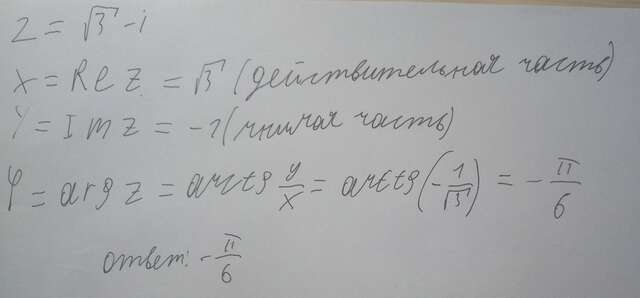 z = √3 - i
x = Re z = √3 (действительная часть)
y = Im z = -1 (мнимая часть)
φ = arg z = arctg y/x = arctg (-1/√3) = -π/6
ответ: -π/6